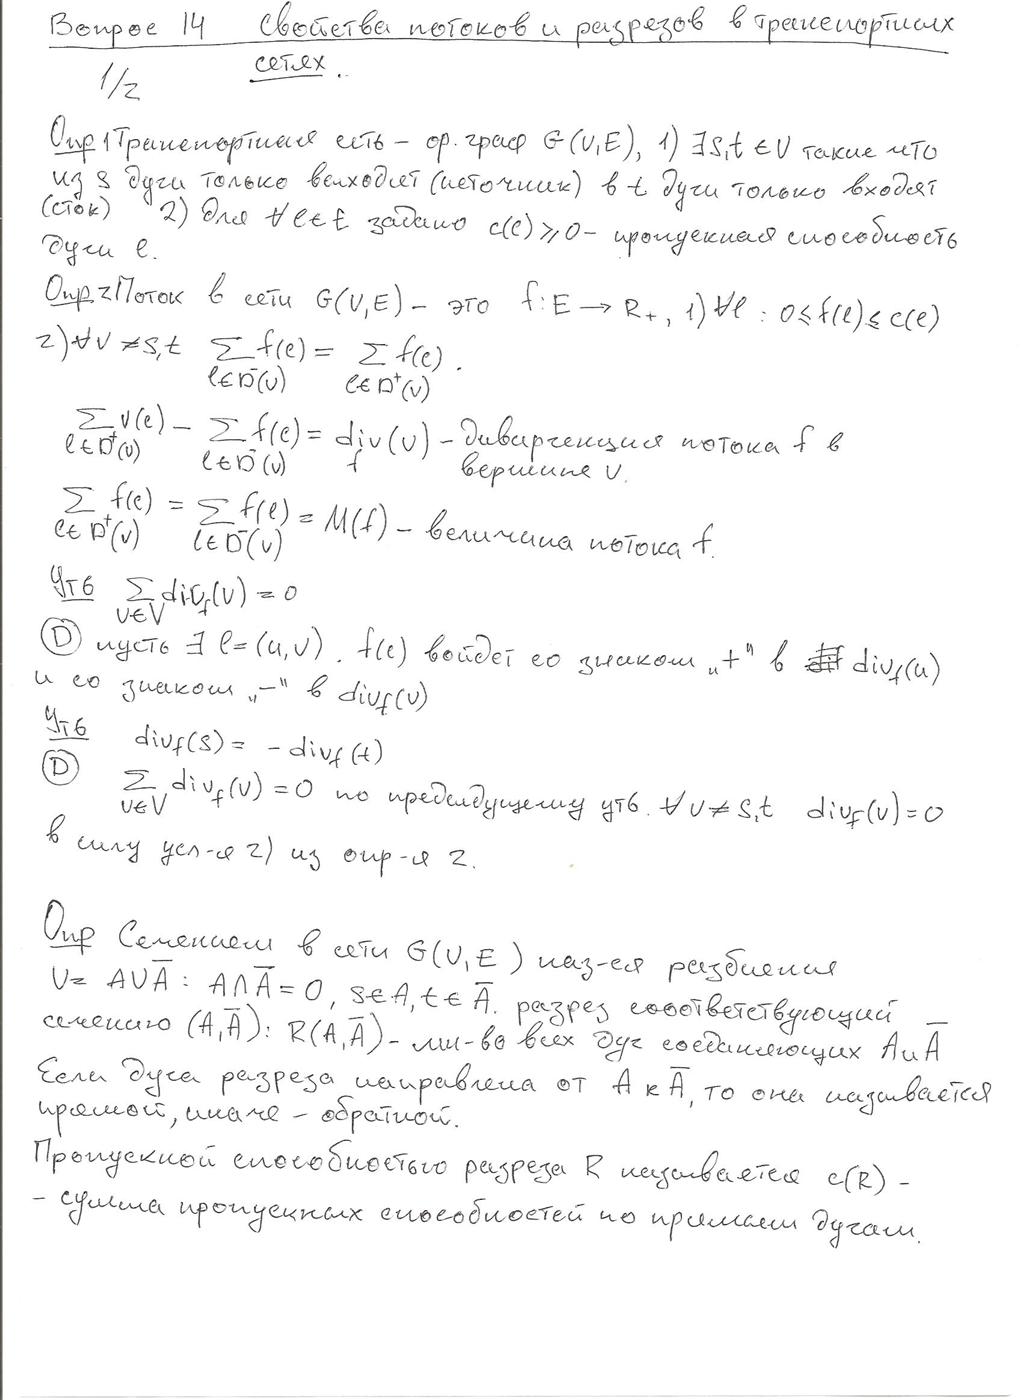 Вопрос 14 Свойства потоков и разрезов в транспортных
сетях.
1/2
Опр 1 Транспортная сеть – ор. граф G(V,E), 1) ∃s,t ∈ V такие что
из s дуги только выходят (источник) в t дуги только входят
(сток) 2) для ∀e∈E задано c(e) ⩾ 0 – пропускная способность
дуги e.
Опр.2 Поток в сети G(V,E) – это f: E → R₊, 1) ∀e : 0 ≤ f(e) ≤ c(e)
2) ∀v ≠ s,t ∑ f(e) = ∑ f(e).
e∈D⁻(v) e∈D⁺(v)
∑ v(e) – ∑ f(e) = div(v) – дивергенция потока f в
e∈D⁺(v) e∈D⁻(v) f вершине v.
∑ f(e) = ∑ f(e) = M(f) – величина потока f.
e∈D⁺(v) e∈D⁻(v)
Утв ∑ div_f(v) = 0
v∈V
Ⓓ пусть ∃ e=(u,v). f(e) войдет со знаком „+" в div_f(u)
и со знаком „–" в div_f(v)
Утв div_f(s) = – div_f(t)
Ⓓ ∑ div_f(v) = 0 по предыдущему утв. ∀ v ≠ s,t div_f(v) = 0
v∈V
в силу усл-я 2) из опр-я 2.
Опр Сечением в сети G(V,E) наз-ся разбиения
V = A∪A̅ : A∩A̅ = 0, s∈A, t∈A̅. разрез соответствующий
сечению (A,A̅): R(A,A̅) – мн-во всех дуг соединяющих A и A̅
Если дуга разреза направлена от A к A̅, то она называется
прямой, иначе – обратной.
Пропускной способностью разреза R называется c(R) –
– сумма пропускных способностей по прямым дугам.